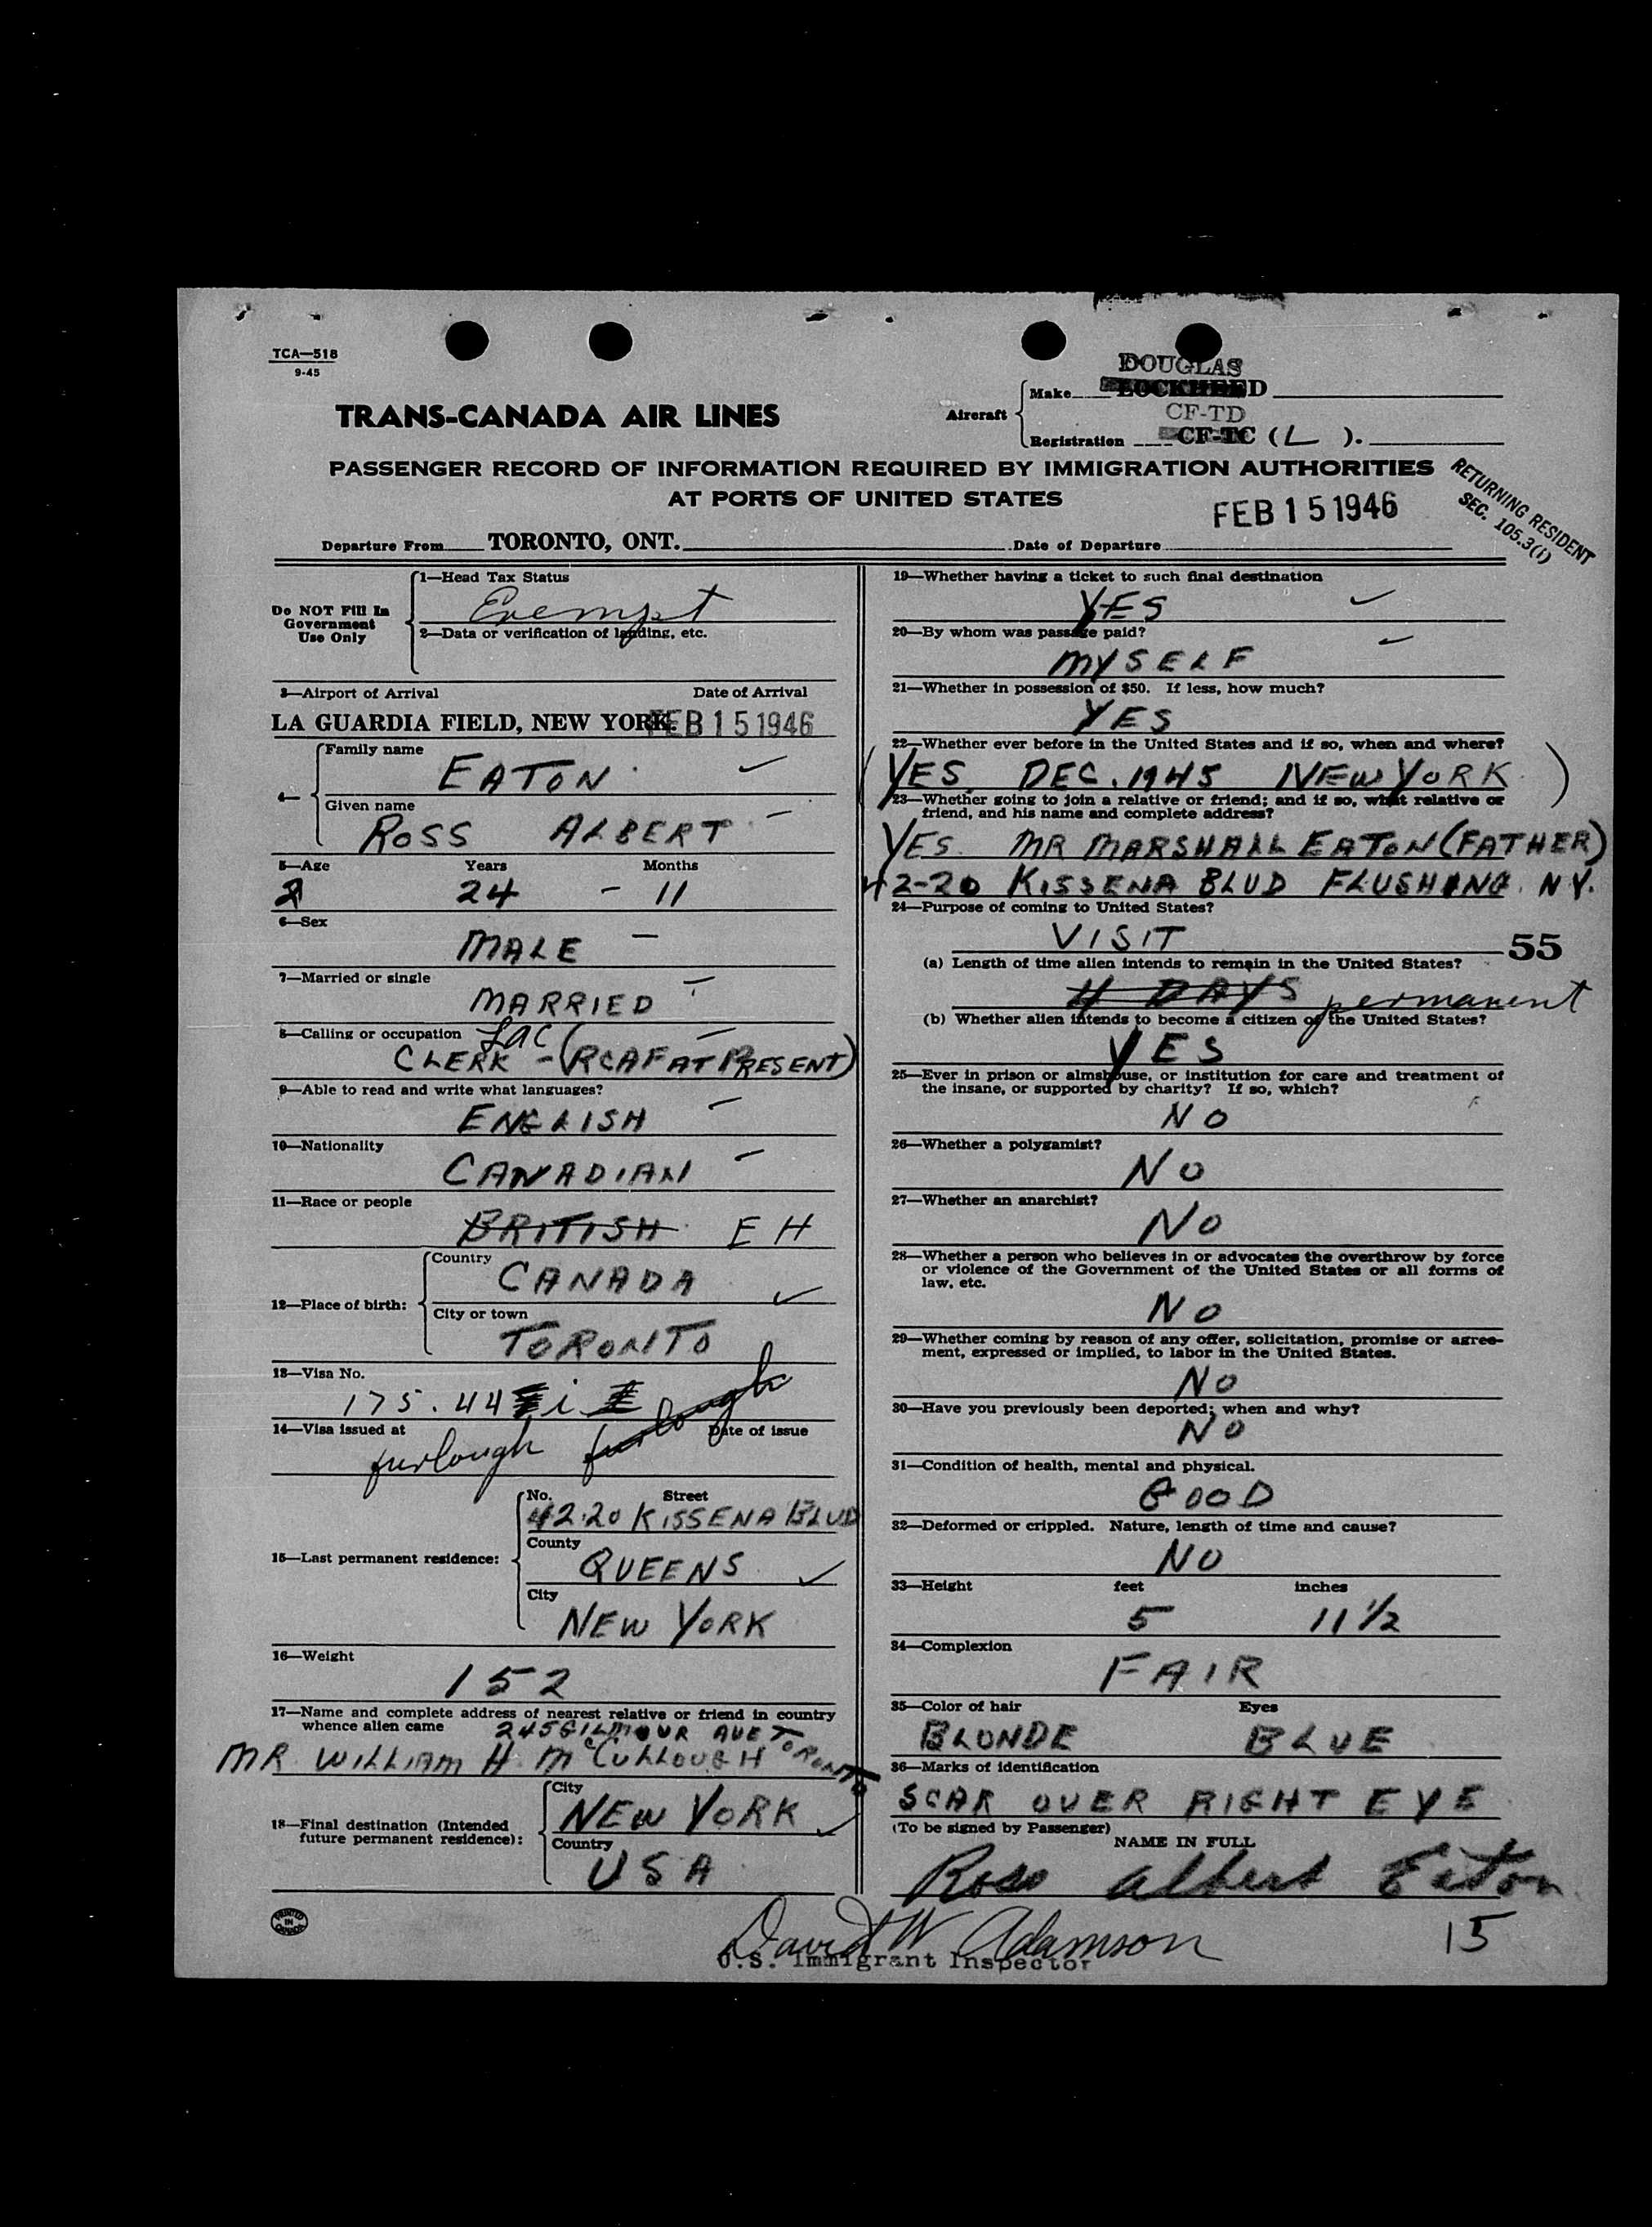 TCA—518
9-45
DOUGLAS
Make LOCKHEED
TRANS-CANADA AIR LINES
Aircraft
CF-TD
Registration CF-TC (L).
PASSENGER RECORD OF INFORMATION REQUIRED BY IMMIGRATION AUTHORITIES
AT PORTS OF UNITED STATES
RETURNING RESIDENT
SEC. 105.3(1)
FEB 15 1946
Departure From TORONTO, ONT. Date of Departure
Do NOT Fill In
Government
Use Only
1—Head Tax Status
Exempt
2—Data or verification of landing, etc.
3—Airport of Arrival Date of Arrival
LA GUARDIA FIELD, NEW YORK. FEB 15 1946
4—
Family name
EATON
Given name
ROSS ALBERT
5—Age Years Months
24 - 11
6—Sex
MALE
7—Married or single
MARRIED
8—Calling or occupation LAC
CLERK - (RCAF AT PRESENT)
9—Able to read and write what languages?
ENGLISH
10—Nationality
CANADIAN
11—Race or people
BRITISH EH
12—Place of birth:
Country
CANADA
City or town
TORONTO
13—Visa No.
175.44 i furlough
14—Visa issued at Date of issue
furlough
15—Last permanent residence:
No. Street
42-20 KISSENA BLVD
County
QUEENS
City
NEW YORK
16—Weight
152
17—Name and complete address of nearest relative or friend in country
whence alien came 245 GILMOUR AVE TORONTO
MR WILLIAM H. McCULLOUGH
18—Final destination (Intended
future permanent residence):
City
NEW YORK
Country
USA
PRINTED
IN
CANADA
19—Whether having a ticket to such final destination
YES
20—By whom was passage paid?
MYSELF
21—Whether in possession of $50. If less, how much?
YES
22—Whether ever before in the United States and if so, when and where?
(YES DEC. 1945 NEW YORK)
23—Whether going to join a relative or friend; and if so, what relative or
friend, and his name and complete address?
YES. MR MARSHALL EATON (FATHER)
42-20 KISSENA BLVD FLUSHING. N.Y.
24—Purpose of coming to United States?
VISIT
55
(a) Length of time alien intends to remain in the United States?
4 DAYS permanent
(b) Whether alien intends to become a citizen of the United States?
YES
25—Ever in prison or almshouse, or institution for care and treatment of
the insane, or supported by charity? If so, which?
NO
26—Whether a polygamist?
NO
27—Whether an anarchist?
NO
28—Whether a person who believes in or advocates the overthrow by force
or violence of the Government of the United States or all forms of
law, etc.
NO
29—Whether coming by reason of any offer, solicitation, promise or agree-
ment, expressed or implied, to labor in the United States.
NO
30—Have you previously been deported; when and why?
NO
31—Condition of health, mental and physical.
GOOD
32—Deformed or crippled. Nature, length of time and cause?
NO
33—Height feet inches
5 11 1/2
34—Complexion
FAIR
35—Color of hair Eyes
BLONDE BLUE
36—Marks of identification
SCAR OVER RIGHT EYE
(To be signed by Passenger)
NAME IN FULL
Ross Albert Eaton
15
David W Adamson
U.S. Immigrant Inspector